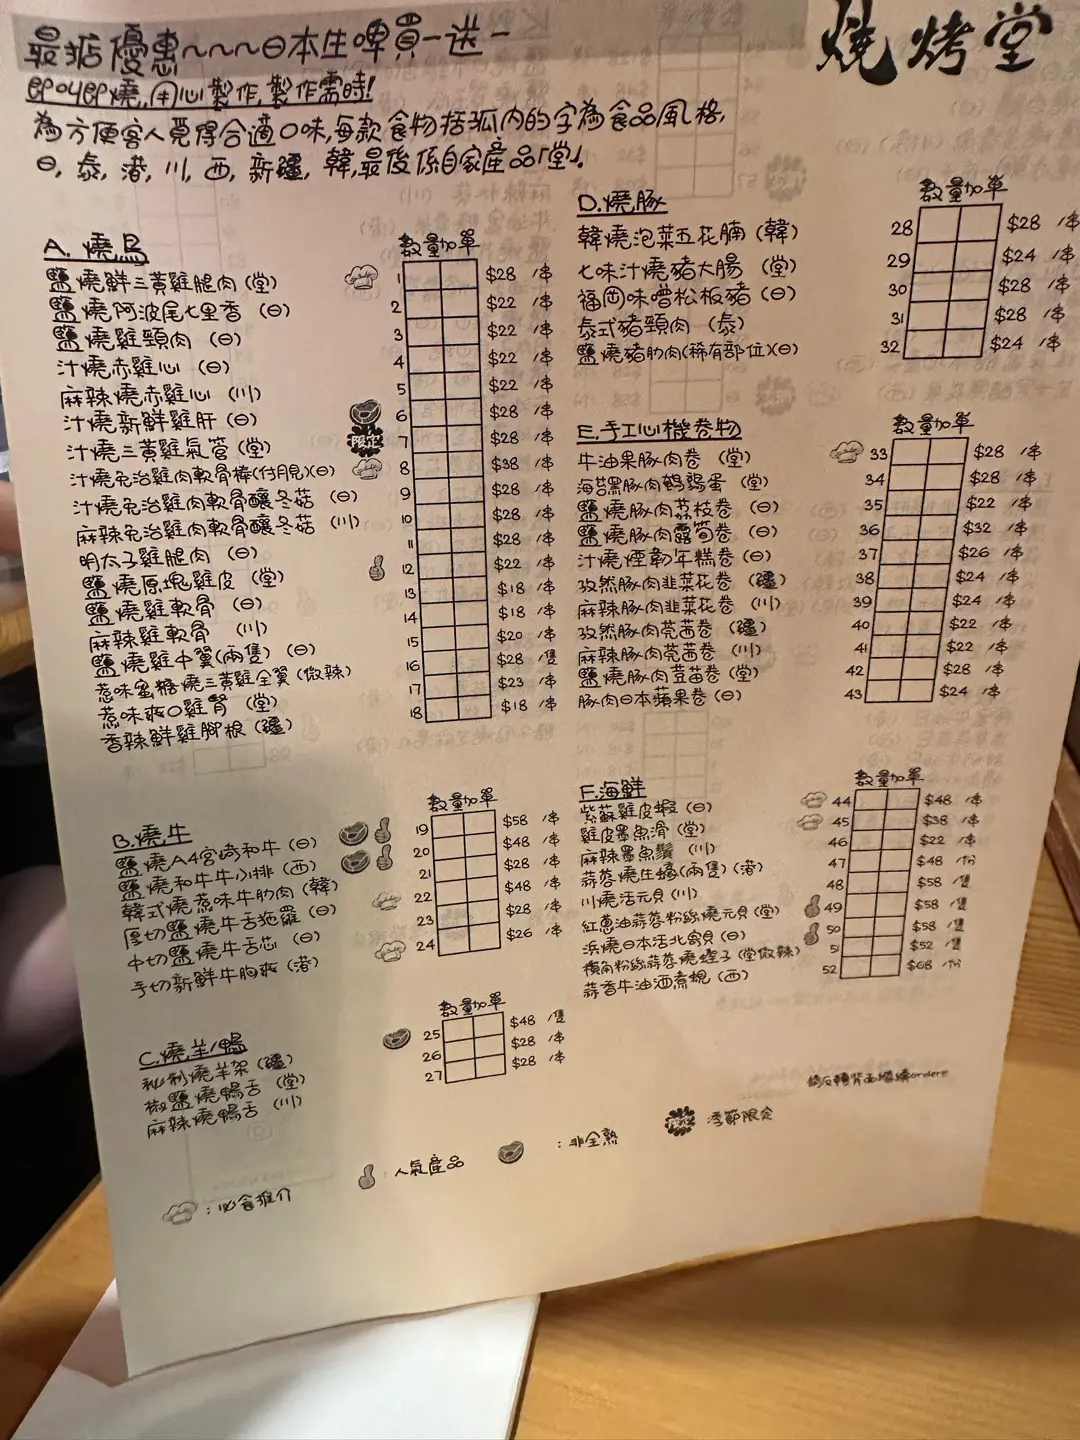 最抵優惠~~~日本生啤買一送一
燒烤堂
即叫即燒,用心製作,製作需時!
為方便客人覓得合適口味,每款食物括弧內的字為食品風格,
日, 泰, 港, 川, 西, 新疆, 韓, 最後係自家產品「堂」。
A. 燒鳥 數量 加單
鹽燒鮮三黃雞腿肉 (堂) 1 $28 /串
鹽燒阿波尾七里香 (日) 2 $22 /串
鹽燒雞頸肉 (日) 3 $22 /串
汁燒赤雞心 (日) 4 $22 /串
麻辣燒赤雞心 (川) 5 $22 /串
汁燒新鮮雞肝 (日) 6 $28 /串
汁燒三黃雞氣管 (堂) 限定 7 $28 /串
汁燒免治雞肉軟骨棒(付月見)(日) 8 $38 /串
汁燒免治雞肉軟骨釀冬菇 (日) 9 $28 /串
麻辣免治雞肉軟骨釀冬菇 (川) 10 $28 /串
明太子雞腿肉 (日) 11 $28 /串
鹽燒原塊雞皮 (堂) 12 $22 /串
鹽燒雞軟骨 (日) 13 $18 /串
麻辣雞軟骨 (川) 14 $18 /串
鹽燒雞中翼(兩隻) (日) 15 $20 /串
惹味蜜糖燒三黃雞全翼 (微辣) 16 $28 /隻
惹味爽口雞腎 (堂) 17 $23 /串
香辣鮮雞腳根 (疆) 18 $18 /串
B. 燒牛 數量 加單
鹽燒A4宮崎和牛 (日) 19 $58 /串
鹽燒和牛牛小排 (西) 20 $48 /串
韓式燒惹味牛肋肉 (韓) 21 $28 /串
厚切鹽燒牛舌拖羅 (日) 22 $48 /串
中切鹽燒牛舌芯 (日) 23 $28 /串
手切新鮮牛胸爽 (港) 24 $26 /串
C. 燒羊/鴨 數量 加單
秘制燒羊架 (疆) 25 $48 /隻
椒鹽燒鴨舌 (堂) 26 $28 /串
麻辣燒鴨舌 (川) 27 $28 /串
D. 燒豚 數量 加單
韓燒泡菜五花腩 (韓) 28 $28 /串
七味汁燒豬大腸 (堂) 29 $24 /串
福岡味噌松板豬 (日) 30 $28 /串
泰式豬頸肉 (泰) 31 $28 /串
鹽燒豬肋肉(稀有部位)(日) 32 $24 /串
E. 手工心機卷物 數量 加單
牛油果豚肉卷 (堂) 33 $28 /串
海苔黑豚肉鵪鶉蛋 (堂) 34 $28 /串
鹽燒豚肉荔枝卷 (日) 35 $22 /串
鹽燒豚肉露筍卷 (日) 36 $32 /串
汁燒煙韌年糕卷 (日) 37 $26 /串
孜然豚肉韭菜花卷 (疆) 38 $24 /串
麻辣豚肉韭菜花卷 (川) 39 $24 /串
孜然豚肉芫茜卷 (疆) 40 $22 /串
麻辣豚肉芫茜卷 (川) 41 $22 /串
鹽燒豚肉荳苗卷 (堂) 42 $28 /串
豚肉日本蘋果卷 (日) 43 $24 /串
F. 海鮮 數量 加單
紫蘇雞皮蝦 (日) 44 $48 /串
雞皮墨魚滑 (堂) 45 $38 /串
麻辣墨魚鬚 (川) 46 $22 /串
蒜蓉燒生蠔(兩隻) (港) 47 $48 /份
川燒活元貝 (川) 48 $58 /隻
紅蔥油蒜蓉粉絲燒元貝 (堂) 49 $58 /隻
浜燒日本活北寄貝 (日) 50 $58 /隻
橫角粉絲蒜蓉燒蟶子 (堂微辣) 51 $52 /隻
蒜香牛油酒煮蜆 (西) 52 $68 /份
請反轉背面繼續order!!
:必食推介
:人氣產品
:非全熟
限定 季節限定